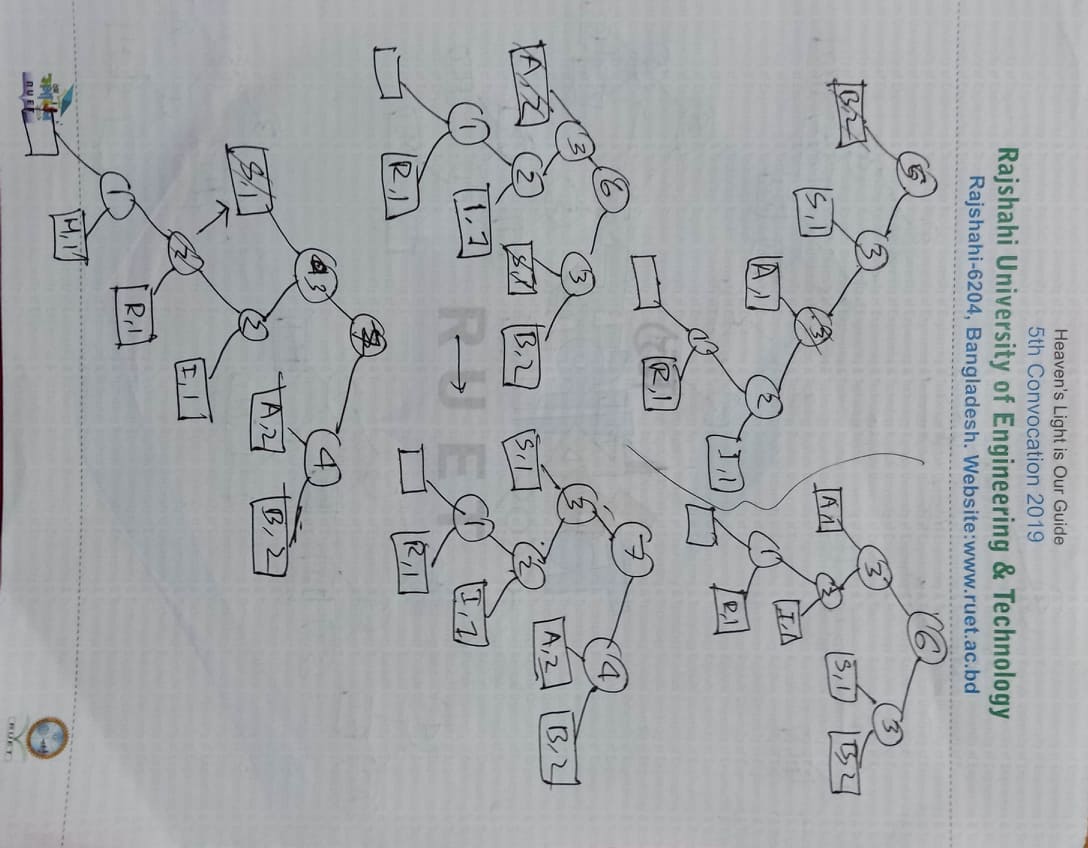 Heaven's Light is Our Guide
5th Convocation 2019
Rajshahi University of Engineering & Technology
Rajshahi-6204, Bangladesh. Website:www.ruet.ac.bd
B,2
3
S,1
3
A,1
2
I,1
1
R,1
6
3
3
A,1
2
S,1
B,2
I,1
1
R,1
6
3
3
A,2
2
S,1
B,2
1
I,1
R,1
7
3
4
S,1
2
A,2
B,2
1
I,1
R,1
RUET
3
4
S,1
2
A,2
B,2
2
I,1
R,1
1
H,1
RUET
RUET